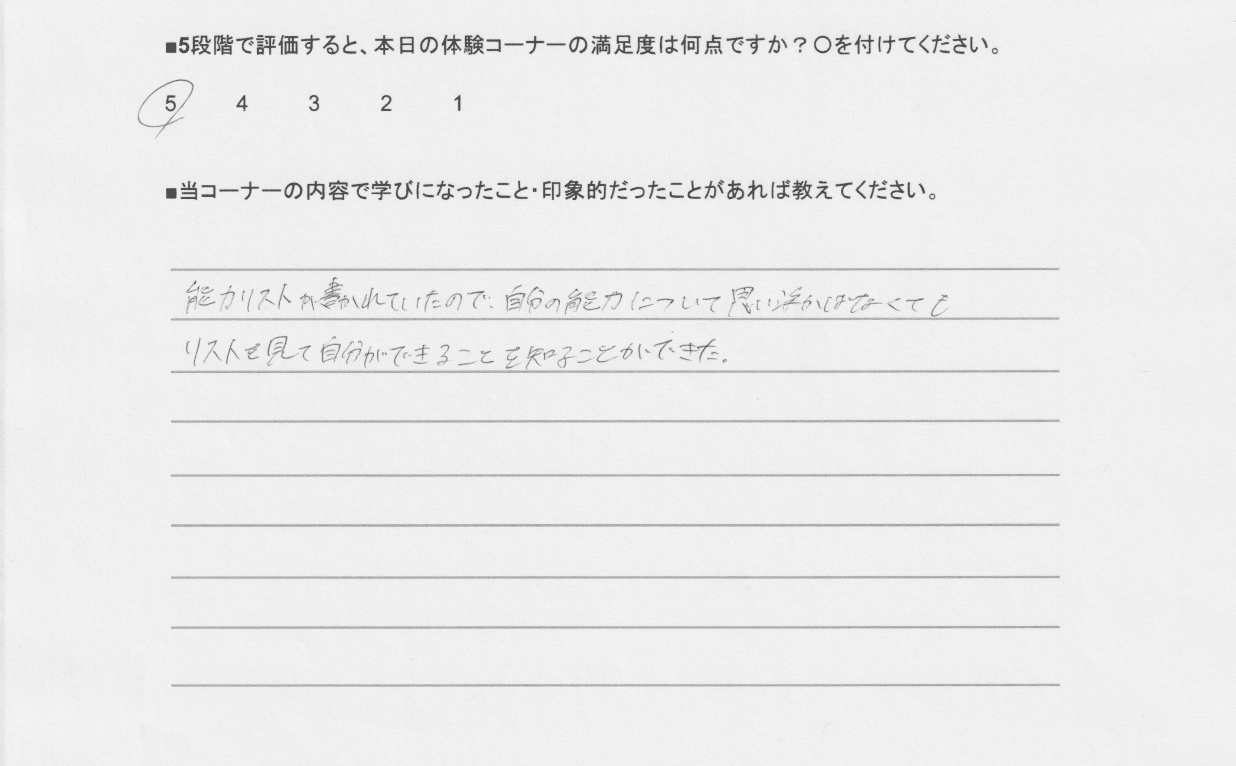 ■5段階で評価すると、本日の体験コーナーの満足度は何点ですか？〇を付けてください。
5 4 3 2 1
■当コーナーの内容で学びになったこと・印象的だったことがあれば教えてください。
能力リストが書かれていたので、自分の能力について思い浮かばなくても
リストを見て自分ができることを知ることができた。